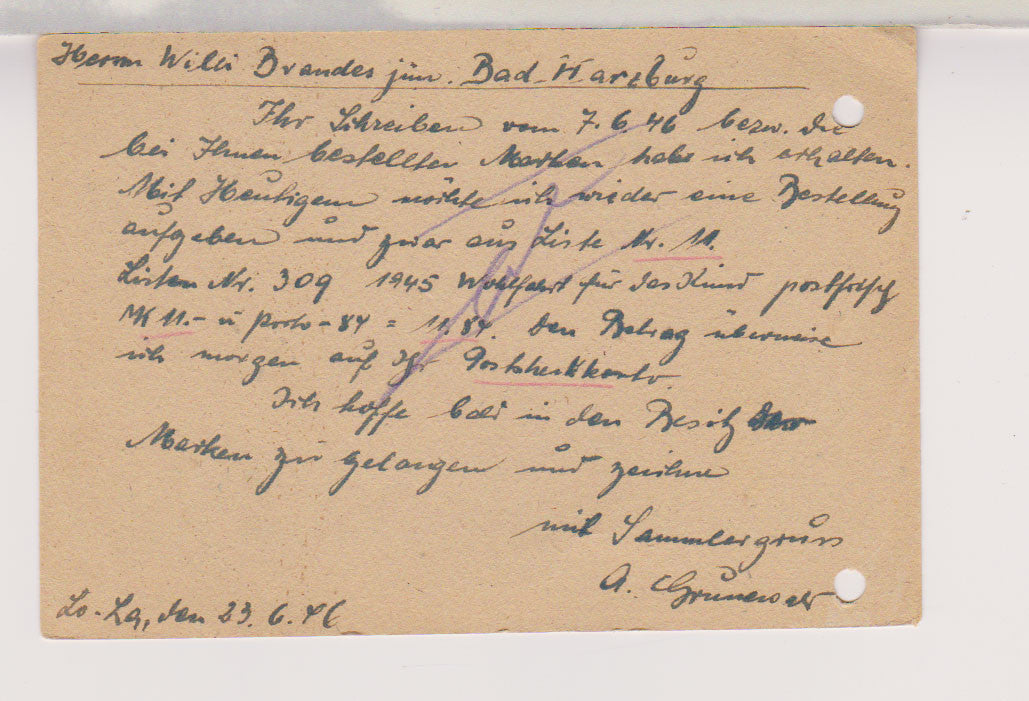 Herrn Willi Brandes jun. Bad Harzburg
Ihr Schreiben vom 7.6.46 bezw. die
bei Ihnen bestellten Marken habe ich erhalten.
Mit Heutigem möchte ich wieder eine Bestellung
aufgeben und zwar aus Liste Nr. 11.
Listen Nr. 309 1945 Wohlfahrt für das Kind postfrisch
MK 11.- u Porto -84 = 11.84. Den Betrag überweise
ich morgen auf Ihr Postscheckkonto.
Ich hoffe bald in den Besitz der
Marken zu gelangen und zeichne
mit Sammlergruss
A. Grunewald
den 23.6.46